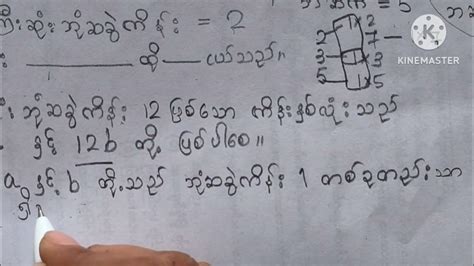 ကြီးဆုံး ဘုံဆခွဲကိန်း = 2
= 5
2 2
7
3 3
5 5
KINEMASTER
: ______ တို့ ______ ယ်သည်။
ဘုံဆခွဲကိန်း 12 ဖြစ်သော ကိန်းနှစ်လုံးသည်
နှင့် 12b တို့ ဖြစ်ပါစေ။
a နှင့် b တို့သည် ဘုံဆခွဲကိန်း 1 တစ်ခုတည်းသာ
ရှိ